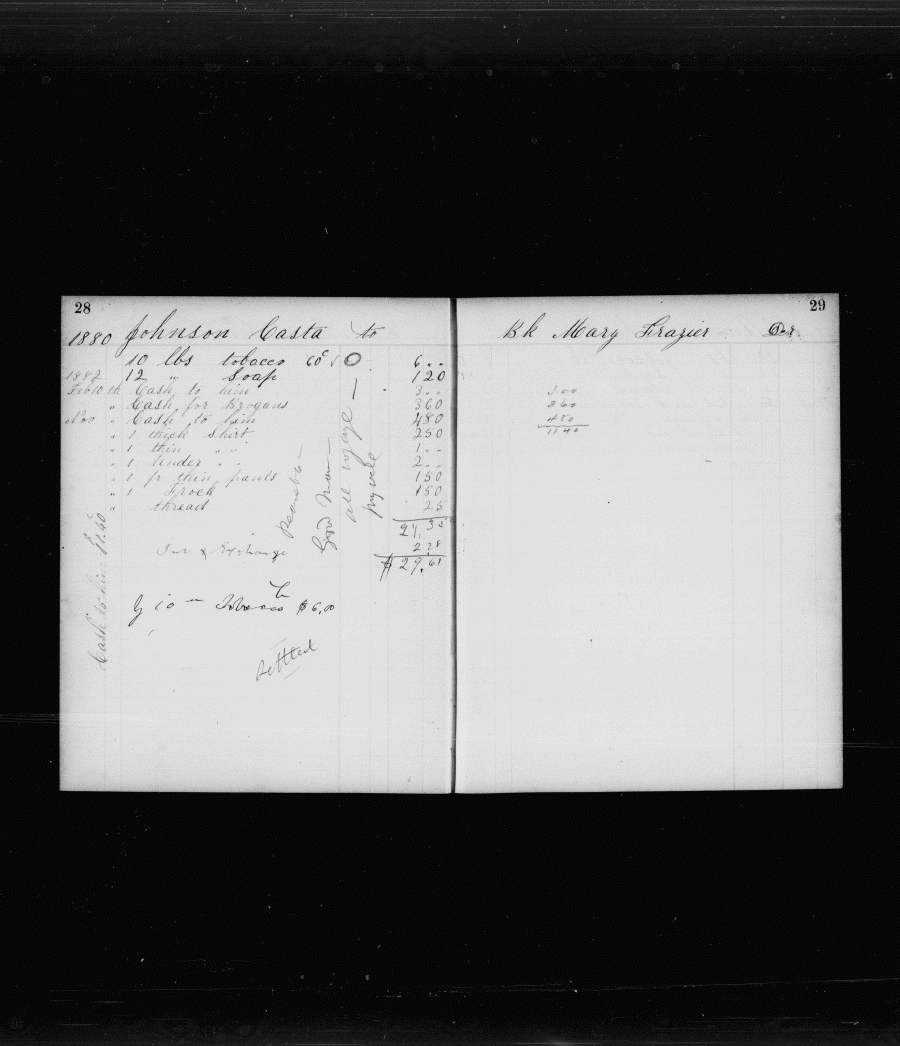 28
1880 Johnson Casta to
10 lbs tobacco 60c 6..
1882 12 " Soap 120
Feb 10th Cash to him 3..
" Cash for Brogans 360
Nov " Cash to him 480
" 1 thick Shirt 250
" 1 thin " " 1..
" 1 Under " " 2..
" 1 pr thin pants 150
" 1 Frock 150
" thread 25
27.35
Exchange 2.28
$29.61
10 Tobacco $6.00
Settled
Good Man
Cash to him $1.40
29
Bk Mary Frazier Dr.
300
360
480
1140